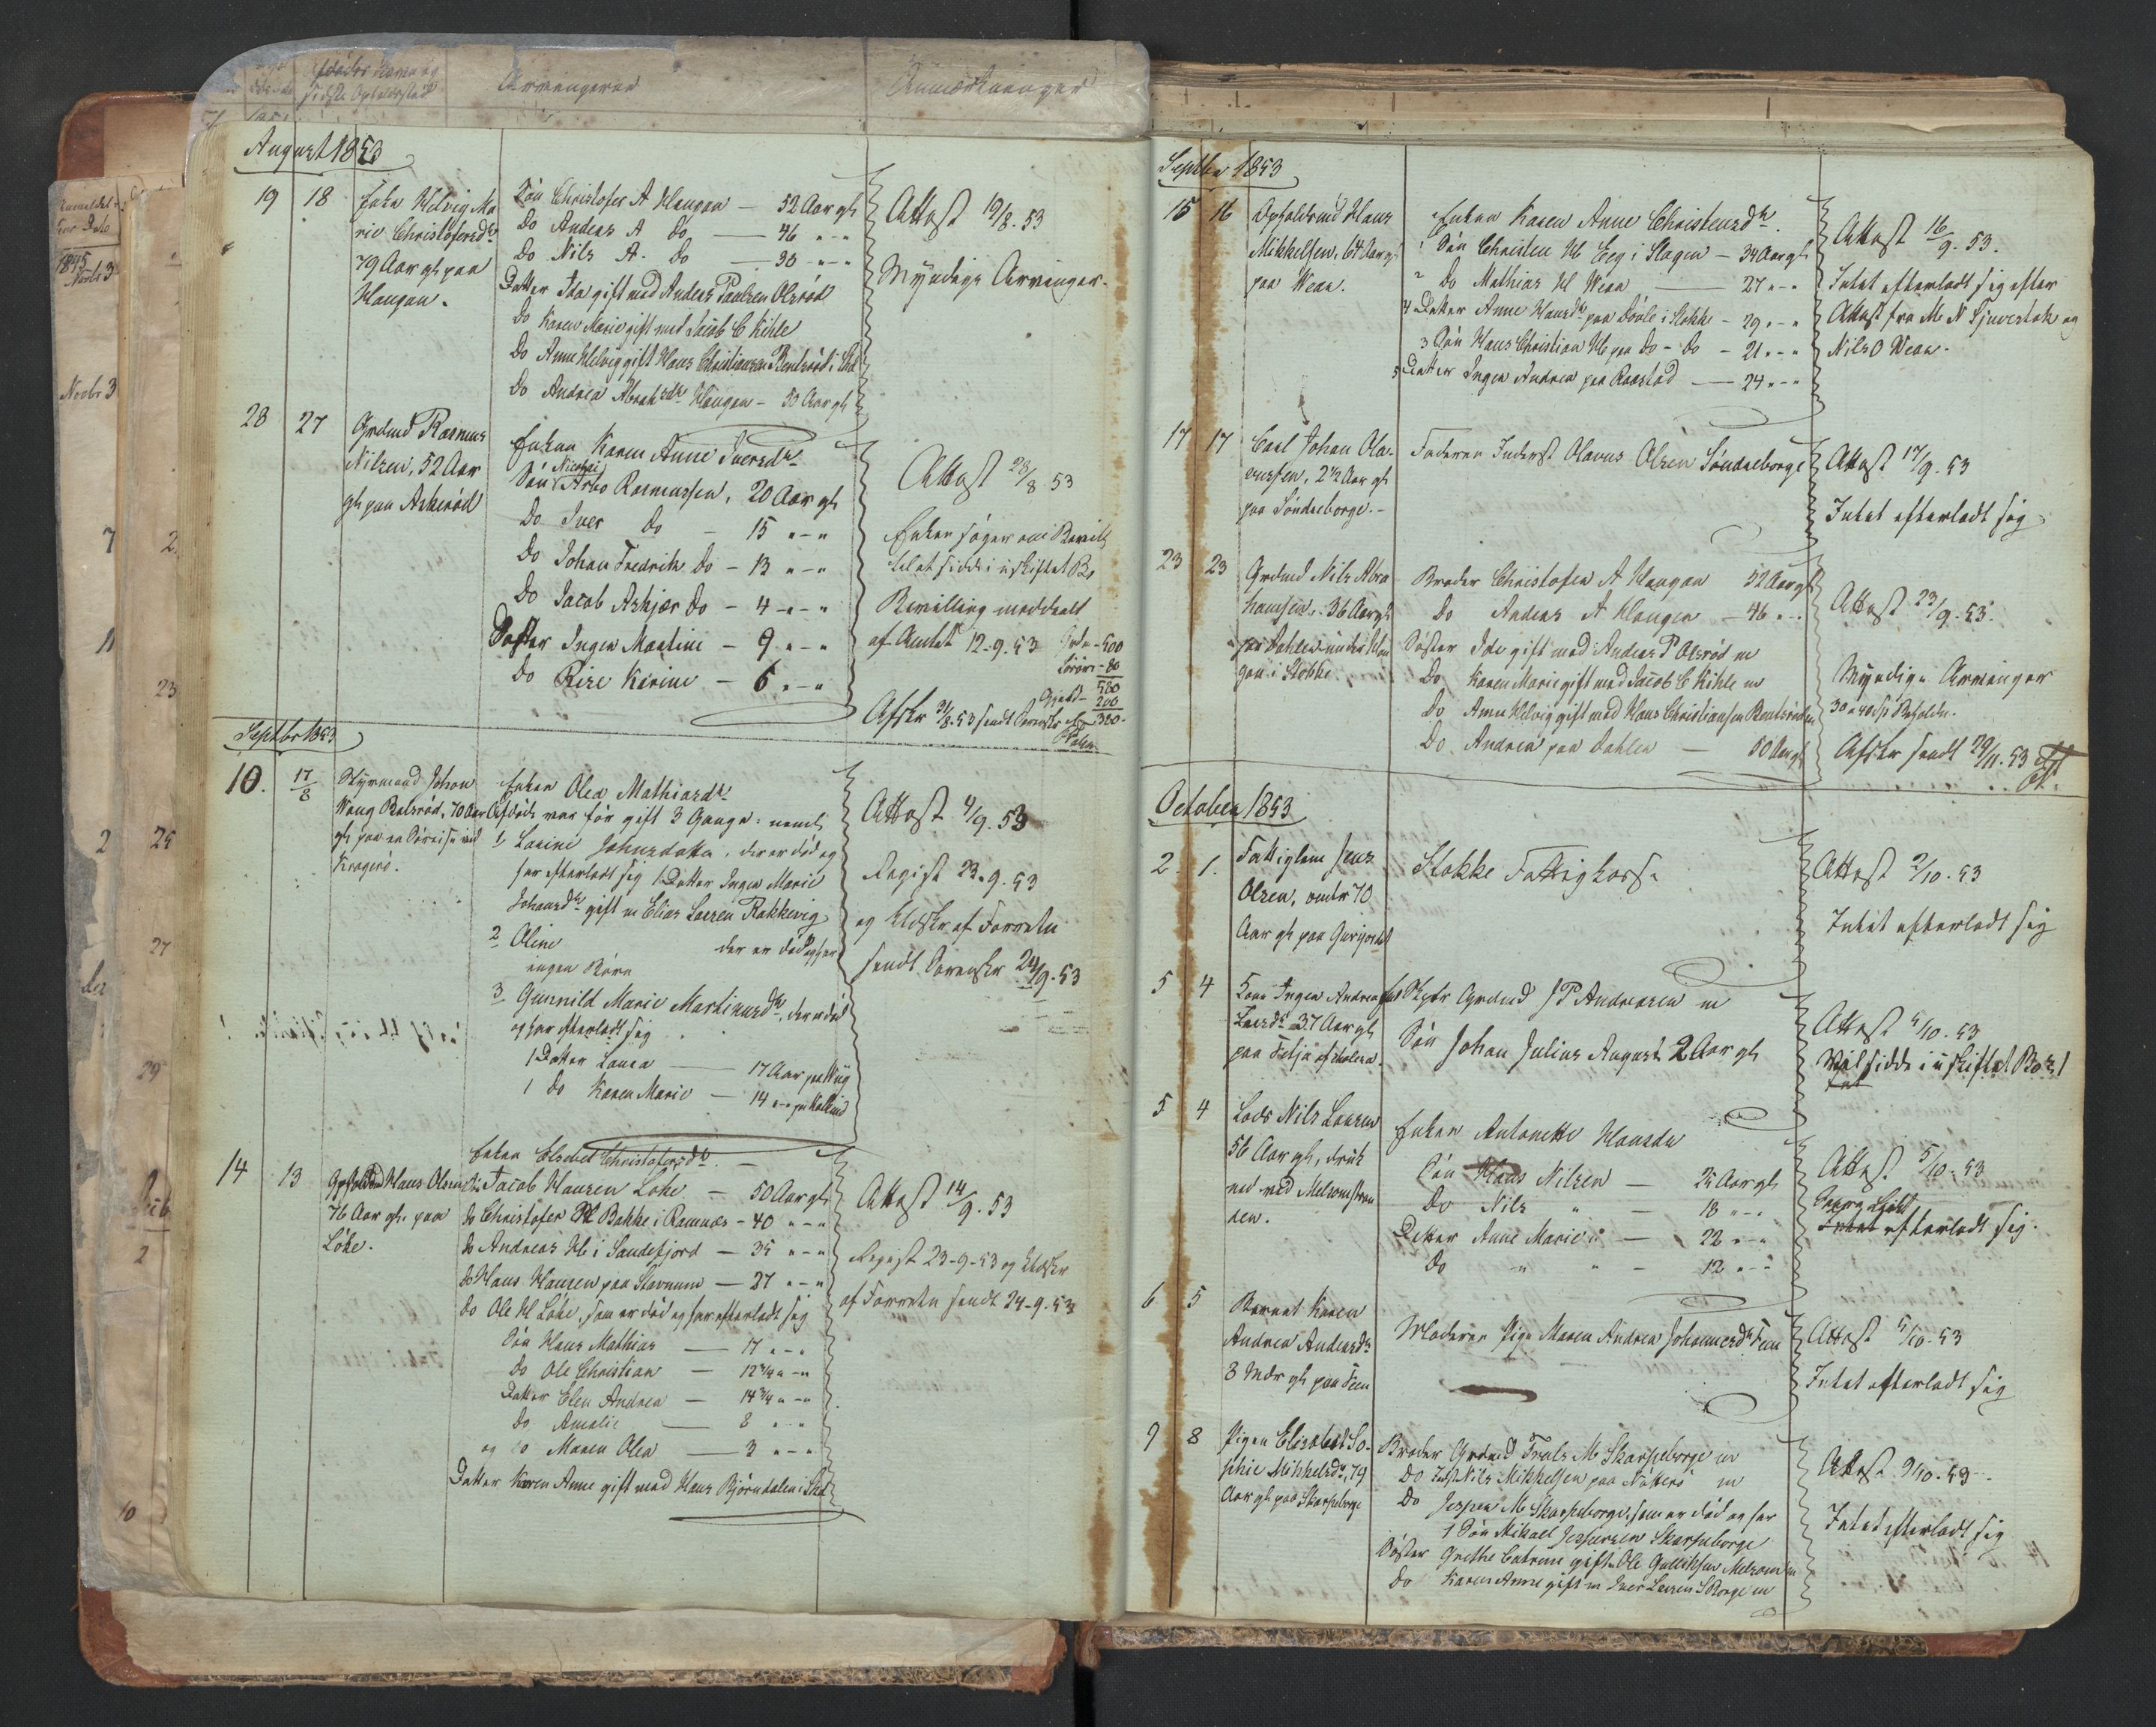 Arvingerne
Anmærkninger
August 1853
19 18
Enke Helvig Ma
rie Christofersdr
79 Aar gl paa
Haugan.
Søn Christofer A Haugan — 52 Aar gl
Do Andeas A do — 46 " - "
Do Nils A. do — 36 " - "
Datter Ida gift med Andeas Paulsen Olsrød
Do Karen Marie gift med Jacob C Kihle
Do Anne Helvig gift Hans Christiansen Bentsrød i
Do Andrea Abrahsdr Haugan — 50 Aar gl
Attest 19/8. 53
Myndige Arvinger.
28 27
Grdmd Rasmus
Nilsen, 52 Aar
gl paa Askerød
Enken Karen Anne Iversdr
Nicolai
Søn Arbo Rasmussen, 20 Aar gl
Do Iver do — 15 " - "
Do Johan Fredrik do — 13 " - "
Do Jacob Askjær do — 4 " - "
Datter Inger Martine — 9 " - "
Do Kirine — 6 " - "
Attest 28/8 53
Enken søger om Bevill
til at sidde i uskiftet Bo
Bevilling meddealt
af Amtet 12-9. 53
500
Løsøre - 80
580
Gjæld - 200
380 -
Septbr 1853
10. 17/8
Styrmand Johan
Haug 70 Aar
gl paa en Søreise ved
Kragerø.
Enken Olea Mathiasdr
Afdøde var før gift 3 Gange: neml
1, Larine Johnsdatter, der er død og
har efterladt sig 1 Datter Inger Marie
Johansdr gift m Elias Larsen Rakkevig
2 Oline der er død og har
ingen Børn
3 Gunnild Marie Martinusdr, der er død
og har efterladt sig
1 Datter Laura — 17 Aar
1 do Karen Marie — 14 " -
Attest 4/9. 53
Regist 23-9. 53
og Udskr af Forretn
sendt Sorenskr 24/9. 53
14 13
Hans Olsen
76 Aar gl. paa
Løke.
Enken Elsebet Christofersdr. —
Søn Jacob Hansen Løke — 50 Aar gl
do Christofer H Bakke i Ramnæs — 40 " - "
do Andreas H i Sandefjord — 35 " - "
do Hans Hansen paa Stavnum — 27 " - "
do Ole H Løke, som er død og har efterladt sig
Søn Hans Mathias — 17 " - "
Do Ole Christian — 12 3/4 " - "
Datter Elen Andrea — 14 3/4 " - "
Do Amalie — 8 " - "
og do Maren Olea — 3 " - "
Datter Karen Anne gift med Hans Bjørndalen i
Attest 14/9. 53
Regist 23-9-53 og Udskr
af Forretn sendt 24-9. 53
Septbr 1853
15 16
Opholdsmd Hans
Mikkelsen, 64 Aar gl
paa Wear.
Enken Karen Anne Christensdr.
1 Søn Christen H Eeg i Slagen — 34 Aar gl
2 Do Mathias H Wear — 27 " - "
4 Datter Anne Hansdr paa Døvle i Stokke — 29 " - "
3 Søn Hans Christian H paa do - do — 21 " - "
5 Datter Inger Andrea paa Raastad — 24 " - "
Attest 16/9. 53.
Intet efterladt sig efter
Attest fra M N og
Nils O Wear.
17 17
Carl Johan Ola-
vussen, 2 1/2 Aar gl
paa Søndreborge. -
Faderen Inderst Olavus Olsen Søndreborge
Attest 17/9. 53
Intet efterladt sig
23 23
Grdmd Nils Abra
hamsen, 36 Aar gl
paa Dahlen under Hau
gan i Stokke
Broder Christofer A Haugan 52 Aar gl
Do Andeas A Haugen — 46 " -
Søster Ida gift med Andeas P Olsrød m
Do Karen Marie gift med Jacob C Kihle m
Do Anne Helvig gift med Hans Christiansen Bentsrød m
Do Andrea paa Dahlen — 50 Aar gl
Attest 23/9. 53.
Myndige Arvinger
Afskr sendt 29/11. 53
October 1853
2. 1.
Fattiglem Jens
Olsen, omtr 70
Aar gl paa
Stokke Fattigkasse
Attest 2/10. 53
Intet efterladt sig
5 4
Kone Inger Andrea
Larsdr 37 Aar gl
paa Vetja af Kolera.
Grdmd J P Andreasen m
Søn Johan Julius August 2 Aar gl
Attest 5/10. 53
sidde i uskiftet Bo
5 4
Lods Nils Larsen
56 Aar gl, druk
ned ved Melsomstran
den.
Enken Antonette Hansdr
Søn Hans Nilsen — 25 Aar gl
Do Nils " — 18 " - "
Datter Anne Marie " — 22 " - "
Do " " — 12 " - "
Attest 5/10. 53
Intet efterladt sig.
6 5
Barnet Karen
Andrea Andeasdr
3 Mdr gl paa Feen
Moderen Pige Maren Andrea Johannesdr Feen
Attest 5/10. 53
Intet efterladt sig
9 8
Pigen Elisabet So-
phie Mikkelsdr, 79
Aar gl paa Skarpeborge
Broder Grdmd Truls M Skarpeborge m
Do Nils Mikkelsen paa Nøtterø m
Do Jesper M Skarpeborge, som er død og har
1 Søn Mikael Jespersen Skarpeborge
Søster Grethe Catrine gift m Ole Gulliksen Melsom m
Do Karen Anne gift m Iver Larsen S Borge m
Attest 9/10. 53 -
Intet efterladt sig